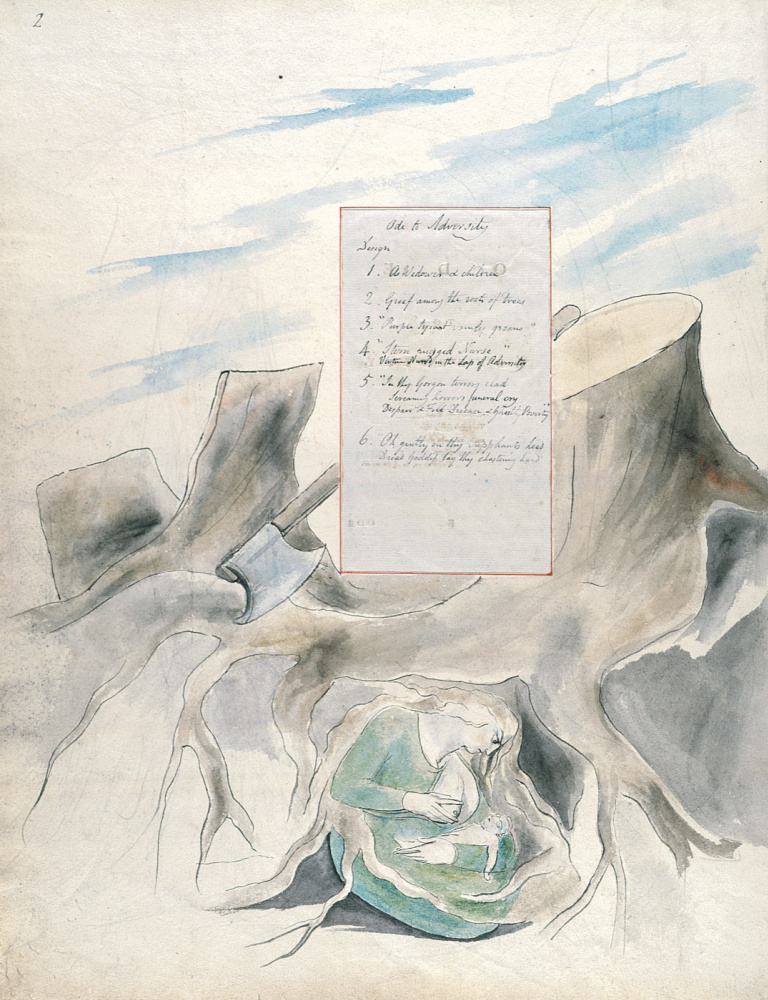 2
Ode to Adversity
Design
1. "A Widower & children
2. Grief among the roots of trees
3. "Purple tyrant vainly groans"
4. "Stern rugged Nurse"
Virtue Nursd in the Lap of Adversity
5. "In thy Gorgon terrors clad
Screaming horrors funeral cry
Despair & Fell Disease & Ghastly Poverty"
6. "Oh gently on thy Suppliants head
Dread Goddess lay thy chastening hand